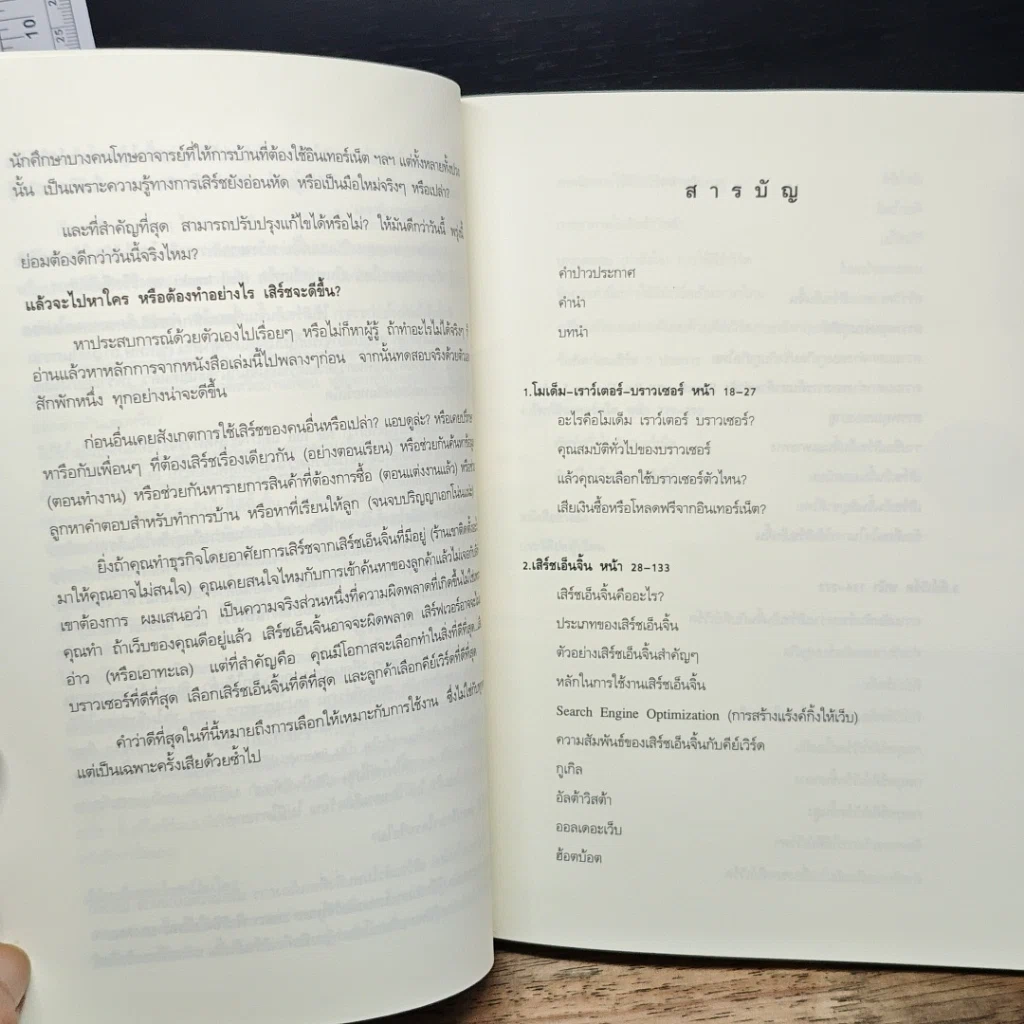 นักศึกษาบางคนโทษอาจารย์ที่ให้การบ้านที่ต้องใช้อินเทอร์เน็ต ฯลฯ แต่ทั้งหลายทั้งปวง
นั้น เป็นเพราะความรู้ทางการเสิร์ชยังอ่อนหัด หรือเป็นมือใหม่จริงๆ หรือเปล่า?
และที่สำคัญที่สุด สามารถปรับปรุงแก้ไขได้หรือไม่? ให้มันดีกว่าวันนี้ พรุ่งนี้
ย่อมต้องดีกว่าวันนี้จริงไหม?
แล้วจะไปหาใคร หรือต้องทำอย่างไร เสิร์ชจะดีขึ้น?
หาประสบการณ์ด้วยตัวเองไปเรื่อยๆ หรือไม่ก็หาผู้รู้ ถ้าทำอะไรไม่ได้จริงๆ ก็
อ่านแล้วหาหลักการจากหนังสือเล่มนี้ไปพลางๆก่อน จากนั้นทดสอบจริงด้วยตัวเอง
สักพักหนึ่ง ทุกอย่างน่าจะดีขึ้น
ก่อนอื่นเคยสังเกตการใช้เสิร์ชของคนอื่นหรือเปล่า? แอบดูล่ะ? หรือเคยปรึกษา
หารือกับเพื่อนๆ ที่ต้องเสิร์ชเรื่องเดียวกัน (อย่างตอนเรียน) หรือช่วยกันค้นหาข้อมูล
(ตอนทำงาน) หรือช่วยกันหารายการสินค้าที่ต้องการซื้อ (ตอนแต่งงานแล้ว) หรือช่วย
ลูกหาคำตอบสำหรับทำการบ้าน หรือหาที่เรียนให้ลูก (จนจบปริญญาเอกโน่นแน่ะ)
ยิ่งถ้าคุณทำธุรกิจโดยอาศัยการเสิร์ชจากเสิร์ชเอ็นจิ้นที่มีอยู่ (ร้านเขาติดตั้ง
มาให้คุณอาจไม่สนใจ) คุณเคยสนใจไหมกับการเข้าค้นหาของลูกค้าแล้วไม่เจอ
เขาต้องการ ผมเสนอว่า เป็นความจริงส่วนหนึ่งที่ความผิดพลาดที่เกิดขึ้นไม่ใช่
คุณทำ ถ้าเว็บของคุณดีอยู่แล้ว เสิร์ชเอ็นจิ้นอาจจะผิดพลาด เสิร์ฟเวอร์อาจจะ
อ่าว (หรือเอาทะเล) แต่ที่สำคัญคือ คุณมีโอกาสจะเลือกทำในสิ่งที่ดีที่สุด
บราวเซอร์ที่ดีที่สุด เลือกเสิร์ชเอ็นจิ้นที่ดีที่สุด และลูกค้าเลือกคีย์เวิร์ดที่ดีที่สุด
คำว่าดีที่สุดในที่นี้หมายถึงการเลือกให้เหมาะกับการใช้งาน ซึ่งไม่ใช่
แต่เป็นเฉพาะครั้งเสียด้วยซ้ำไป
สารบัญ
คำป่าวประกาศ
คำนำ
บทนำ
1.โมเด็ม-เราว์เตอร์-บราวเซอร์ หน้า 18-27
อะไรคือโมเด็ม เราว์เตอร์ บราวเซอร์?
คุณสมบัติทั่วไปของบราวเซอร์
แล้วคุณจะเลือกใช้บราวเซอร์ตัวไหน?
เสียเงินซื้อหรือโหลดฟรีจากอินเทอร์เน็ต?
2.เสิร์ชเอ็นจิ้น หน้า 28-133
เสิร์ชเอ็นจิ้นคืออะไร?
ประเภทของเสิร์ชเอ็นจิ้น
ตัวอย่างเสิร์ชเอ็นจิ้นสำคัญๆ
หลักในการใช้งานเสิร์ชเอ็นจิ้น
Search Engine Optimization (การสร้างแร้งค์กิ้งให้เว็บ)
ความสัมพันธ์ของเสิร์ชเอ็นจิ้นกับคีย์เวิร์ด
กูเกิล
อัลต้าวิสต้า
ออลเดอะเว็บ
ฮ้อตบ้อต